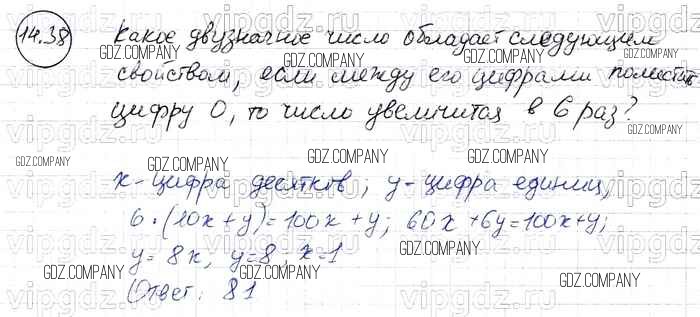 14.38 Какое двузначное число обладает следующим
свойством, если между его цифрами поместить
цифру 0, то число увеличится в 6 раз?
x - цифра десятков; y - цифра единиц;
6·(10x+y)=100x+y; 60x+6y=100x+y;
y=8x; y=8; x=1
Ответ: 81
GDZ.COMPANY
vipgdz